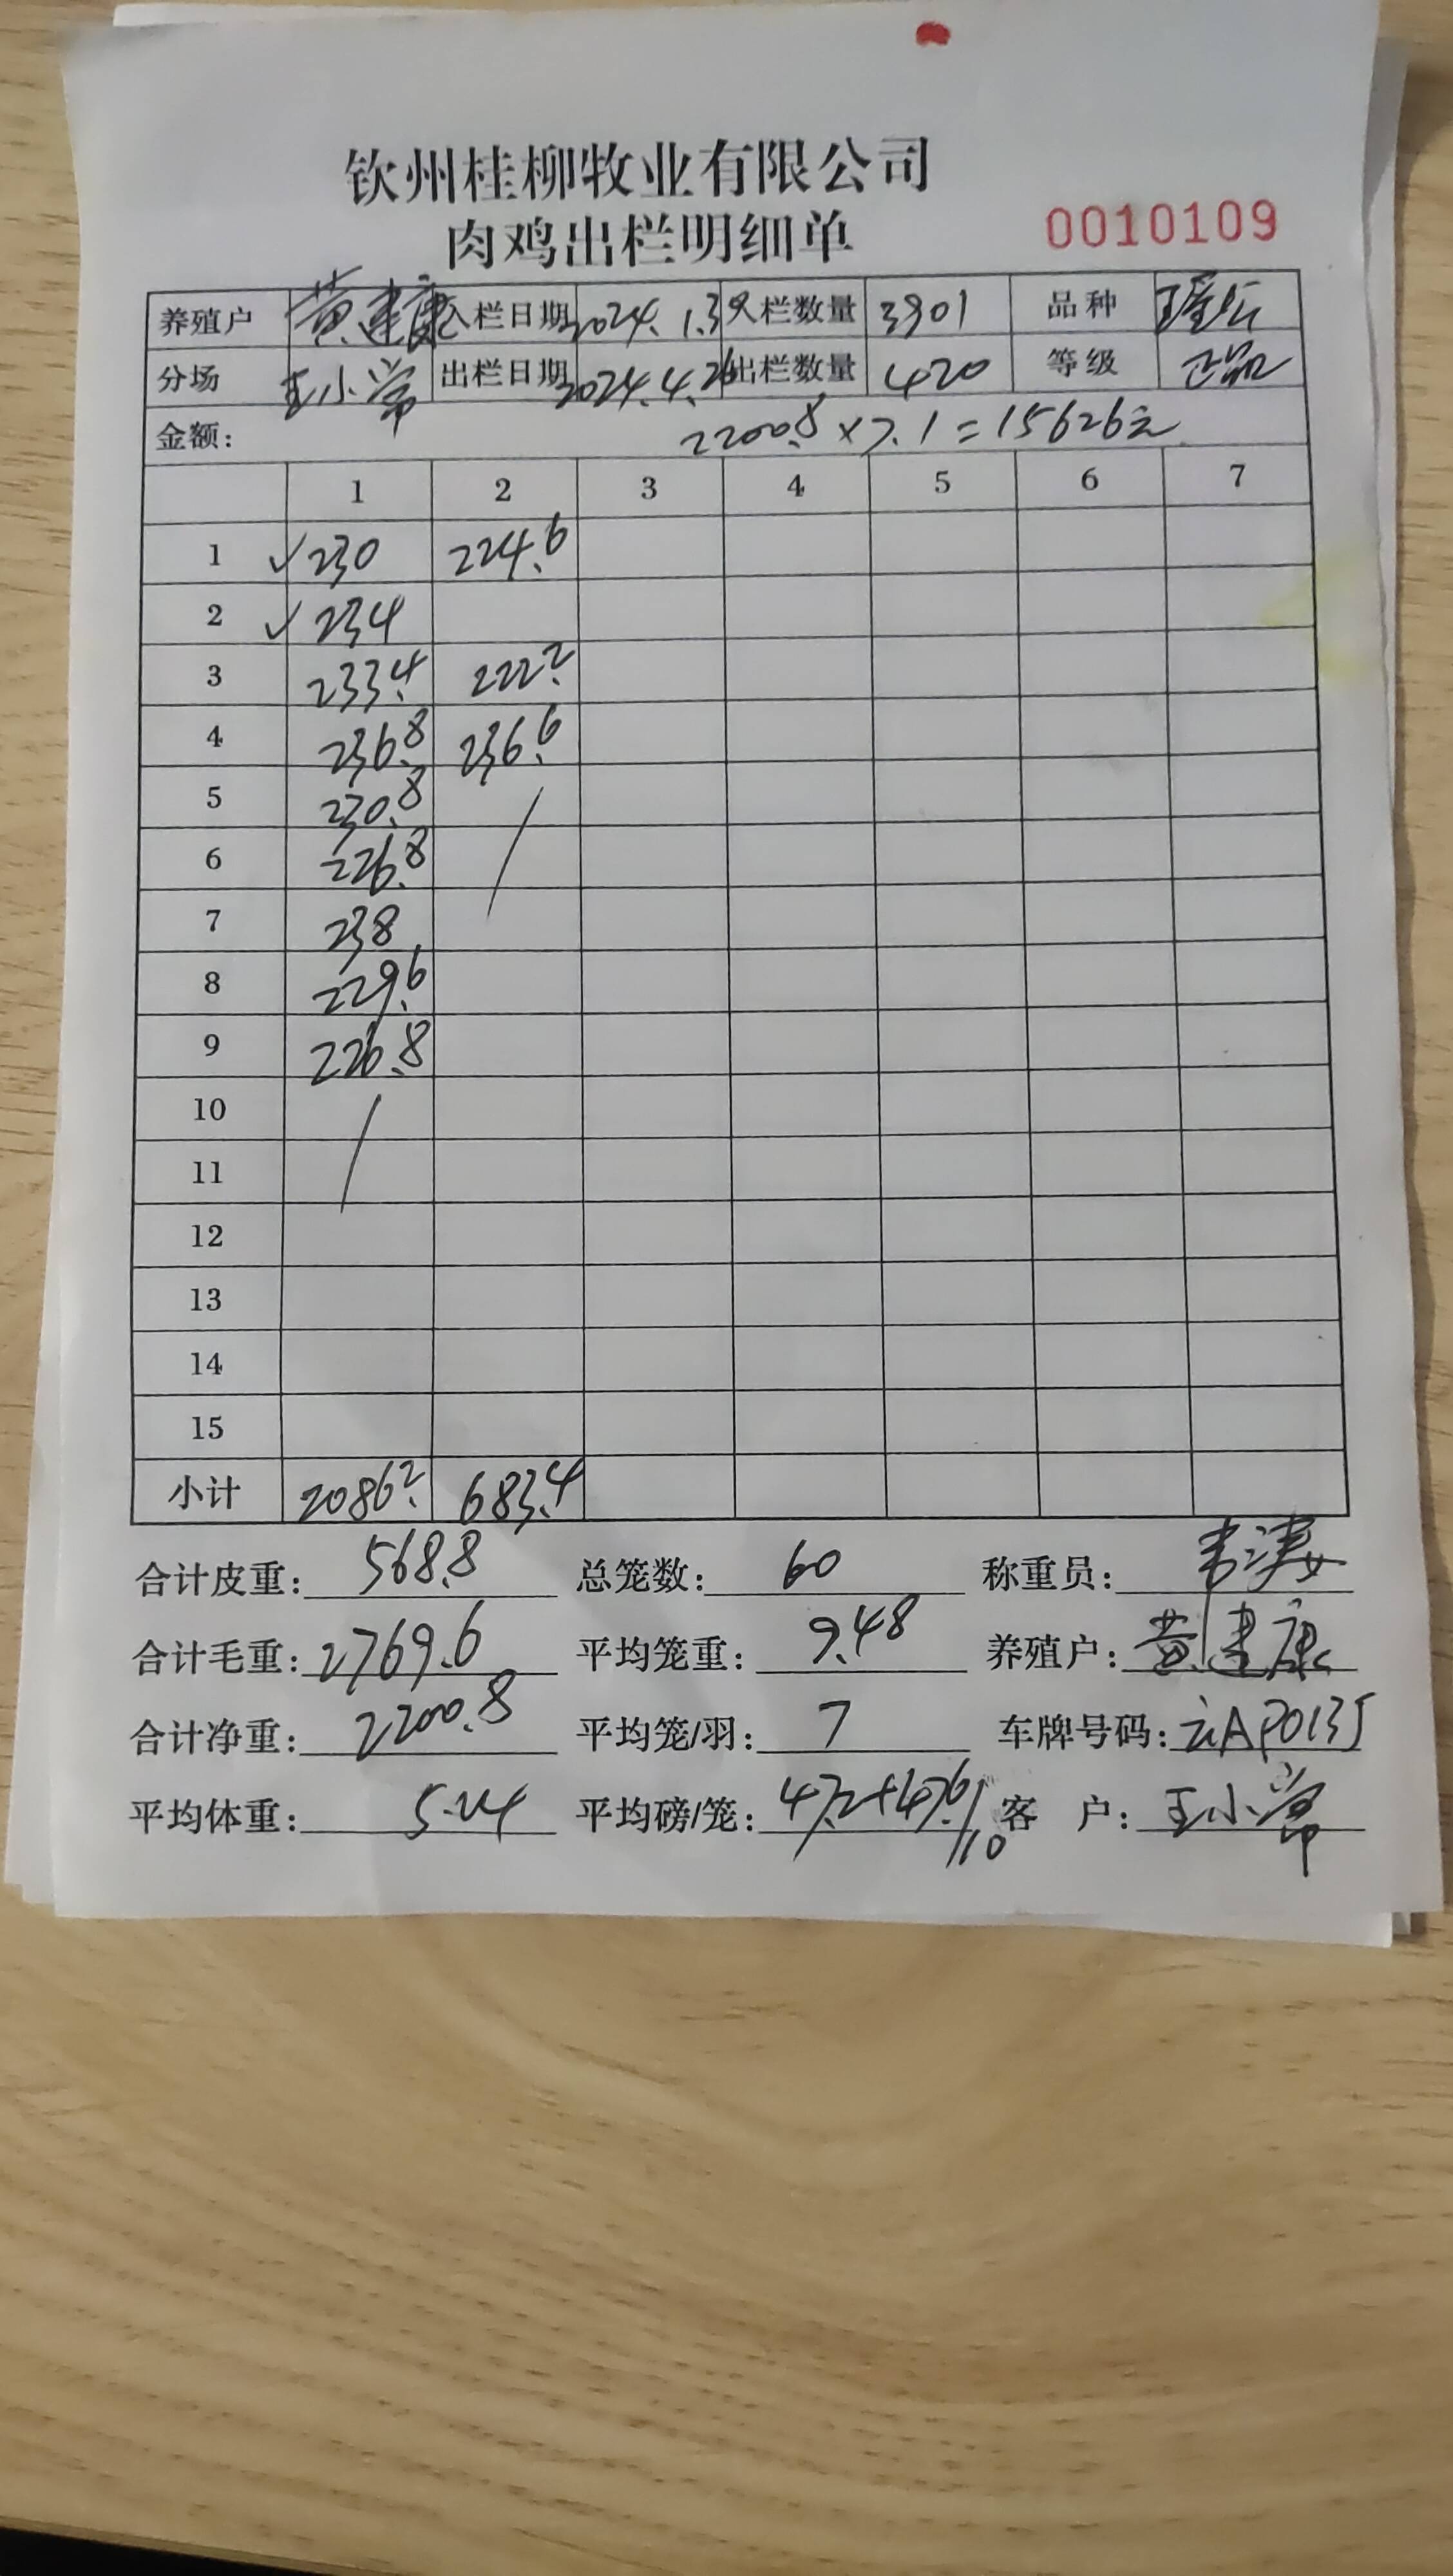 钦州桂柳牧业有限公司
肉鸡出栏明细单 0010109
养殖户 黄建康 入栏日期 2024.1.3 入栏数量 3901 品种
分场 王小常 出栏日期 2024.4.26 出栏数量 420 等级 正品
金额: 2200.8×7.1=15626元
1 2 3 4 5 6 7
1 ✓230 224.6
2 ✓234
3 233.4 222.2
4 236.8 236.6
5 230.8
6 226.8
7 238
8 229.6
9 226.8
10
11
12
13
14
15
小计 2086.2 683.4
合计皮重: 568.8 总笼数: 60 称重员:
合计毛重: 2769.6 平均笼重: 9.48 养殖户: 黄建康
合计净重: 2200.8 平均笼/羽: 7 车牌号码: 云AP0135
平均体重: 5.24 平均磅/笼: 47.2+47.6/10 客 户: 王小常